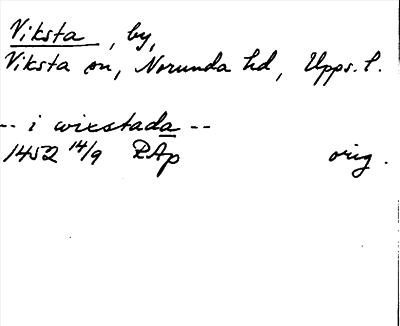 Viksta, by,
Viksta sn, Norunda hd, Upps. l.
-- i wixstada --
1452 14/9 RAp orig.